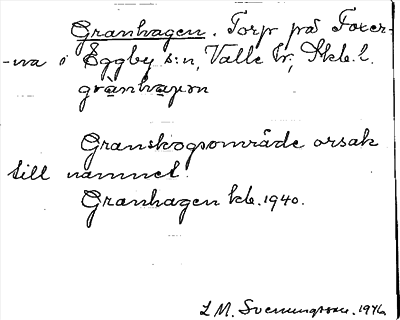 Granhagen. Torp på Foxer-
-na i Eggby s:n, Valle hr, Skb. l.
Granskogsområde orsak
till namnet.
Granhagen kb. 1940.
L M. Svenungsson. 1976